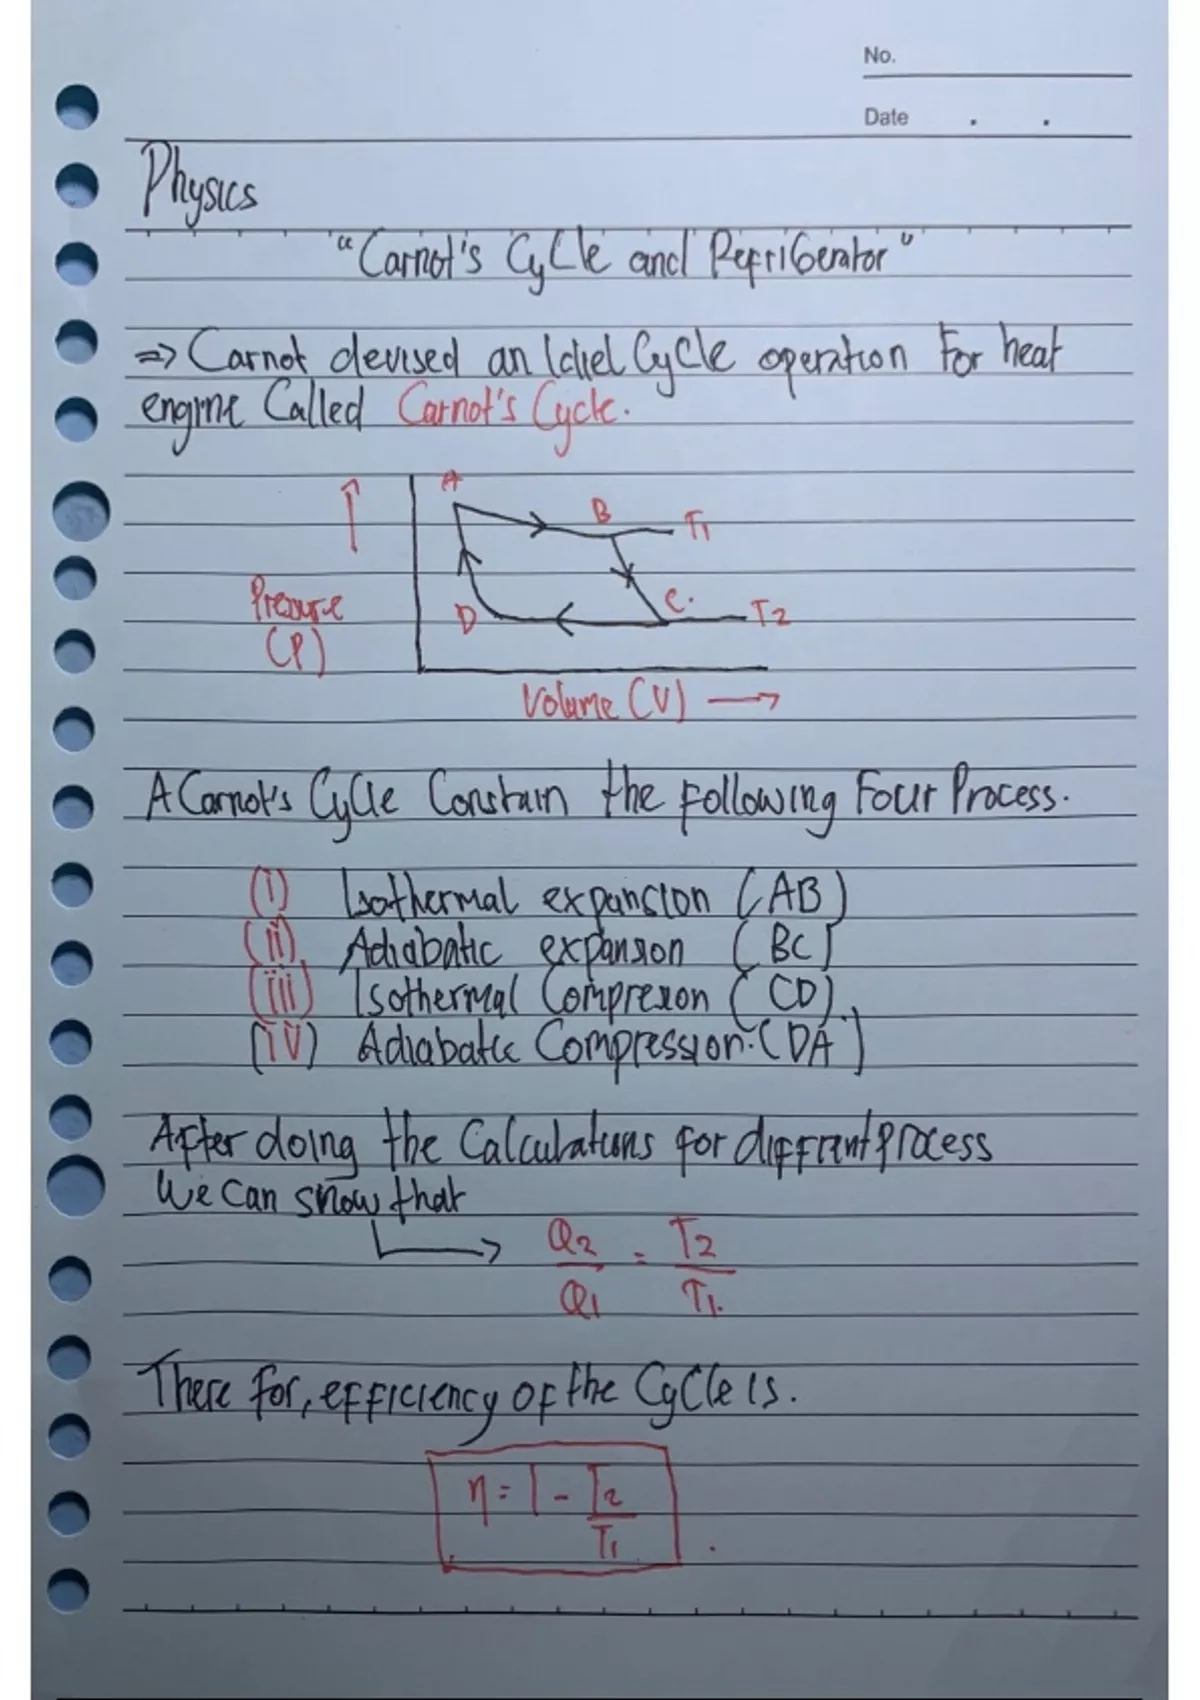 No.
Date . .
Physics
"Carnot's Cycle and Refrigerator"
=> Carnot devised an Idiel Cycle operation For heat
engine Called Carnot's Cycle.
A
B
T1
Pressure
(P)
D
C.
T2
Volume (V) →
A Carnot's Cycle Constain the following Four Process.
(i) Isothermal expansion (AB)
(ii) Adiabatic expansion (BC)
(iii) Isothermal Compression (CD).
(iv) Adiabatic Compression. (DA)
After doing the Calculations for diffrent process
We can show that
→ Q2/Q1 = T2/T1.
There for, efficiency of the Cycle is.
η = 1 - T2/T1.